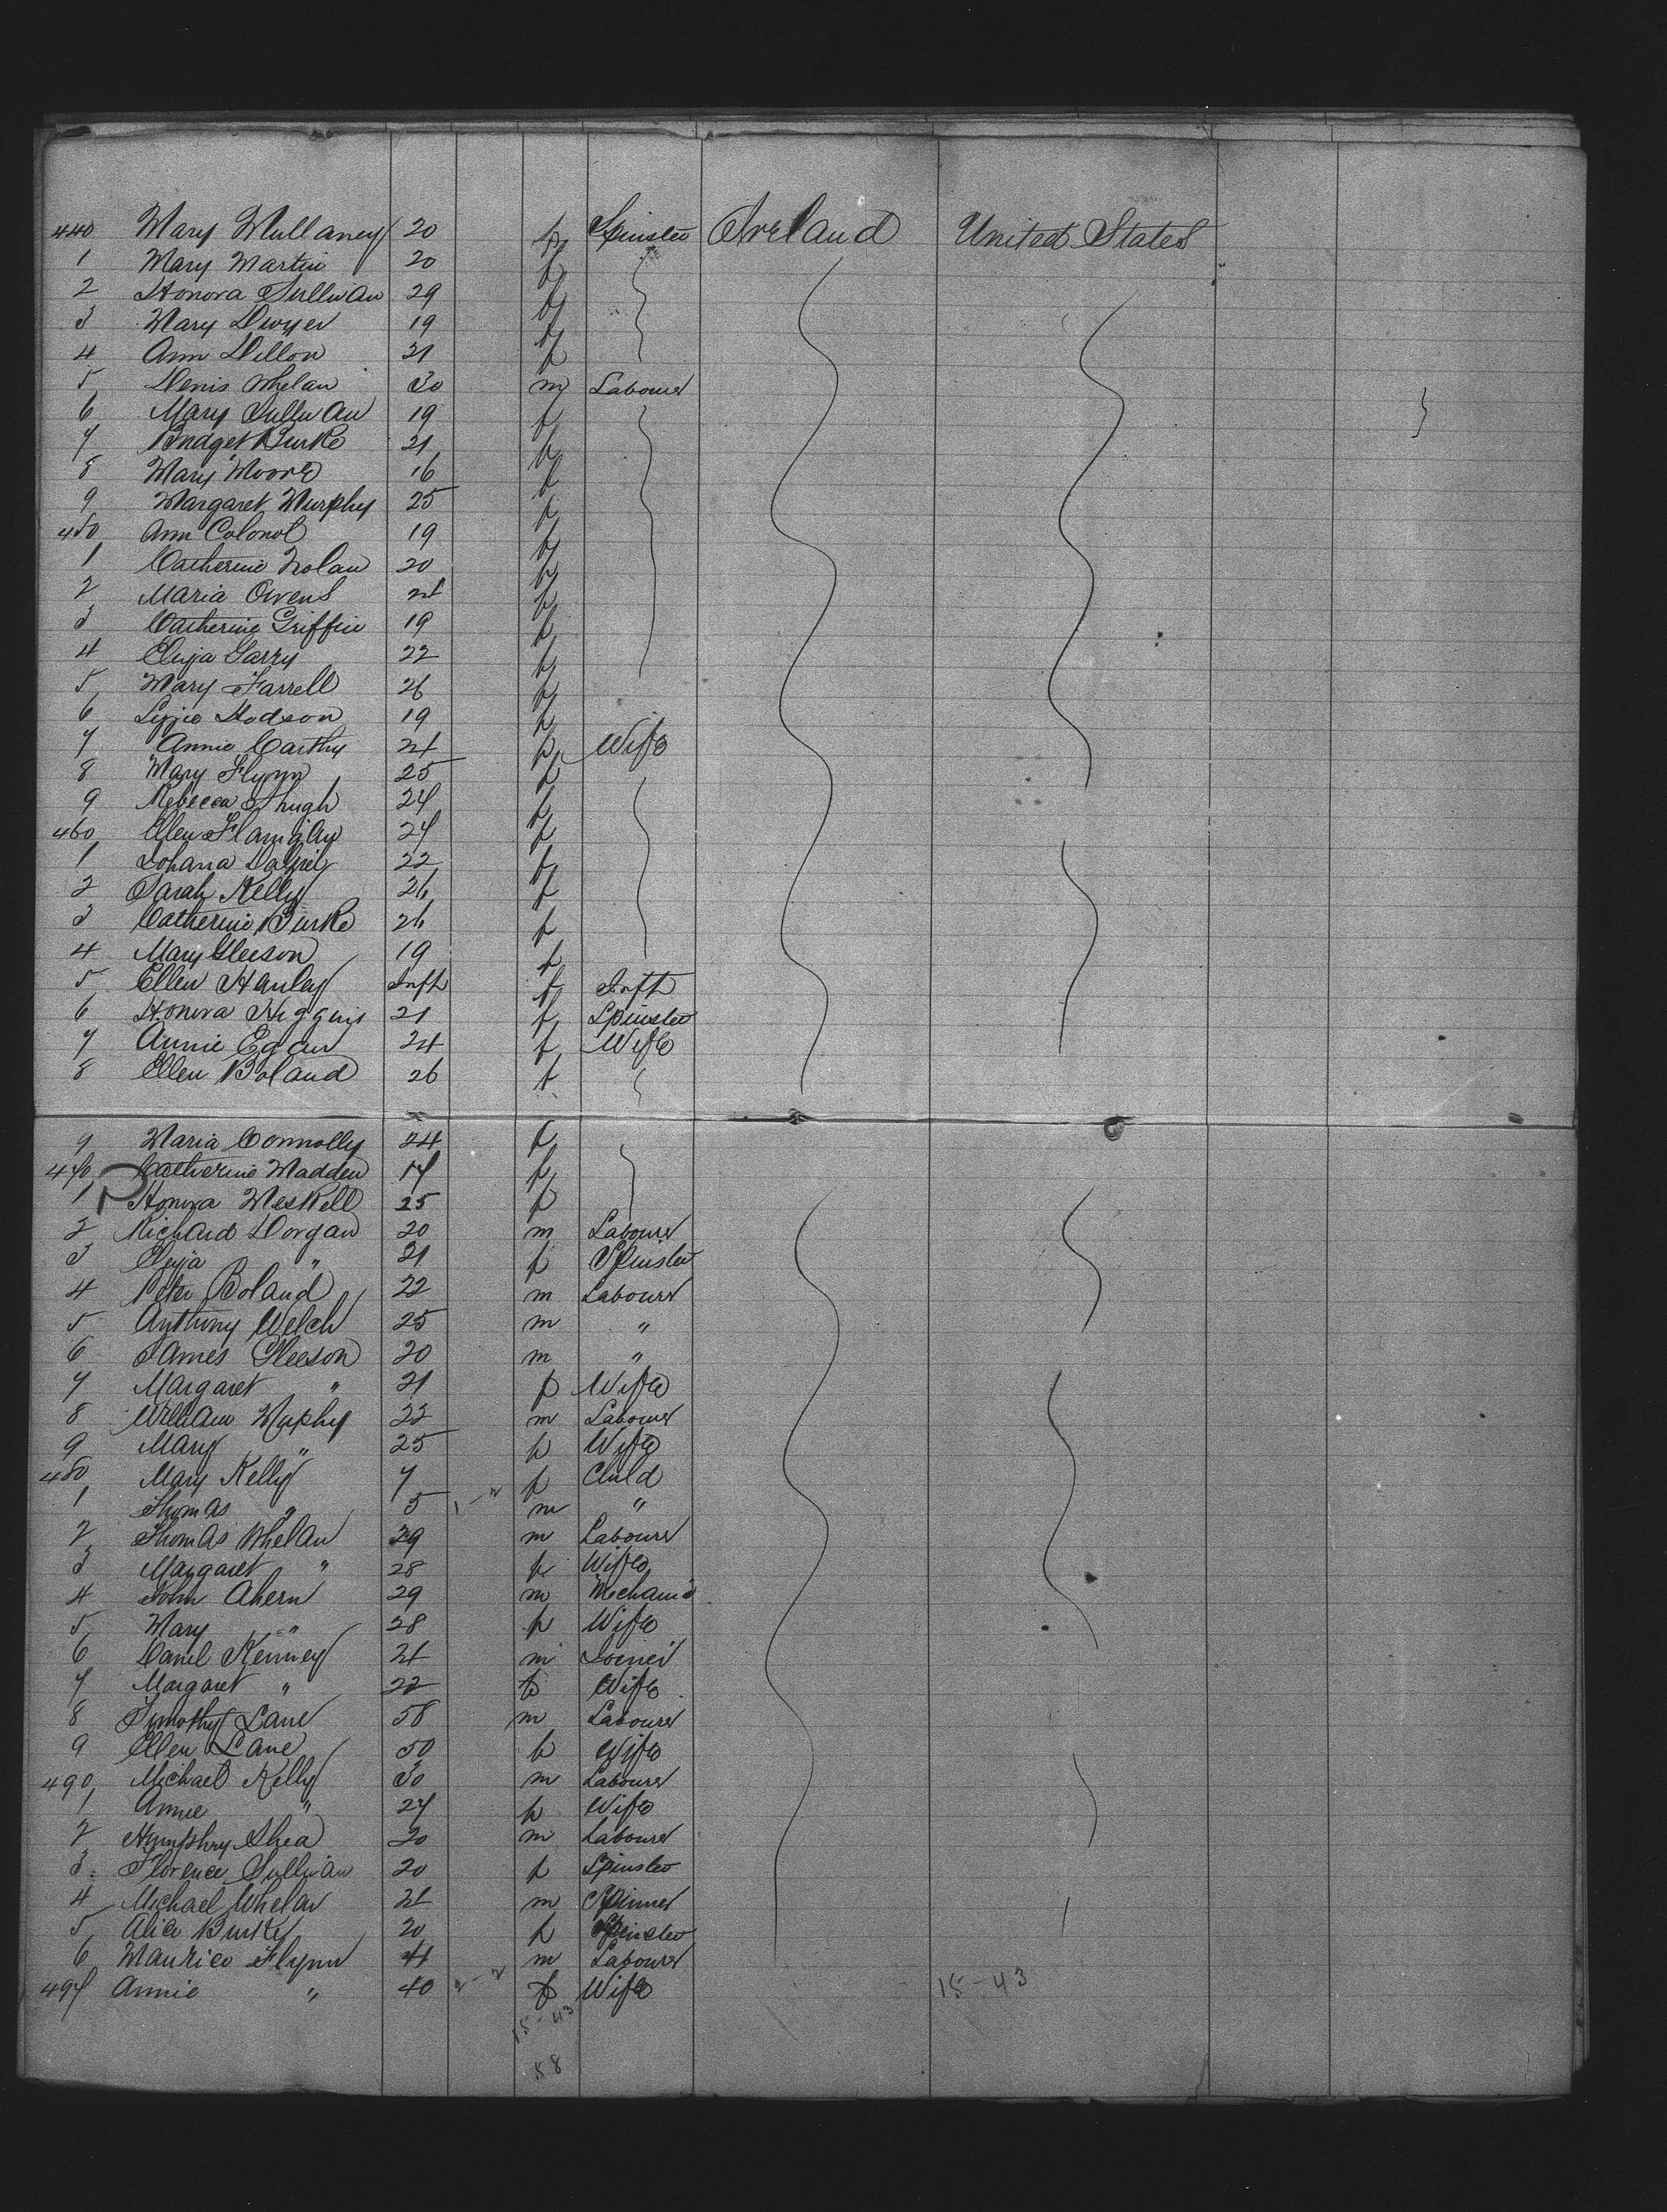 440 Mary Mullaney 20 f Spinster Ireland United States
1 Mary Martin 20 f
2 Honora Sullivan 29 f
3 Mary Dwyer 19 f
4 Ann Dillon 21 f
5 Denis Whelan 30 m Labourer
6 Mary Sullivan 19 f
7 Bridget Burke 21 f
8 Mary Moore 16 f
9 Margaret Murphy 25 f
450 Ann 19 f
1 Catherine Nolan 20 f
2 Maria Owens f
3 Catherine Griffin 19 f
4 Eliza Garry 22 f
5 Mary Farrell 26 f
6 Lizzie Hodson 19 f
7 Annie Carthy 24 f Wife
8 Mary Flynn 25 f
9 Rebecca 24 f
460 Ellen Flanigan 24 f
1 Johana 22 f
2 Sarah Kelly 26 f
3 Catherine Burke 26 f
4 Mary Gleeson 19 f
5 Ellen Hanley Inft f Inft
6 Honora Higgins 21 f Spinster
7 Annie Egan 24 f Wife
8 Ellen Boland 26 f
9 Maria Connolly 24 f
470 Catherine Madden 17 f
1 Honora Meskell 25 f
2 Richard Dorgan 20 m Labourer
3 Eliza " 21 f Spinster
4 Peter Boland 22 m Labourer
5 Anthony Welch 25 m "
6 James Gleeson 20 m "
7 Margaret " 21 f Wife
8 William Muphy 22 m Labourer
9 Mary " 25 f Wife
480 Mary Kelly 7 f Child
1 Thomas " 5 m "
2 Thomas Whelan 29 m Labourer
3 Margaret " 28 f Wife
4 John Ahern 29 m Mechanic
5 Mary " 28 f Wife
6 Daniel Kenney 21 m Joiner
7 Margaret " 22 f Wife
8 Timothy Lane 58 m Labourer
9 Ellen Lane 50 f Wife
490 Michael Kelly 30 m Labourer
1 Annie " 27 f Wife
2 Humphry Shea 20 m Labourer
3 Florence Sullivan 20 f Spinster
4 Michael Whelan 21 m Spinner
5 Alice Burke 20 f Spinster
6 Maurice Flynn 41 m Labourer
497 Annie " 40 f Wife 15-43
15-43
58